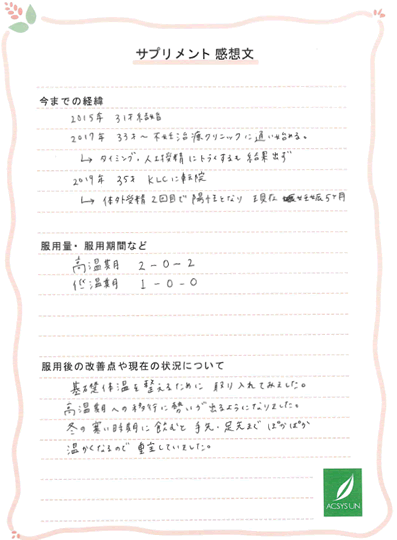 サプリメント 感想文
今までの経緯
2015年 31才結婚
2017年 33才〜不妊治療クリニックに通い始める。
↳ タイミング、人工授精にトライするも結果出ず
2019年 35才 KLCに転院
↳ 体外受精2回目で陽性となり 現在 妊娠5ヶ月
服用量・服用期間など
高温期 2-0-2
低温期 1-0-0
服用後の改善点や現在の状況について
基礎体温を整えるために 取り入れてみました。
高温期への移行に勢いが出るようになりました。
冬の寒い時期に飲むと 手先・足先まで ぽかぽか
温かくなるので 重宝していました。
ACSYS LIN